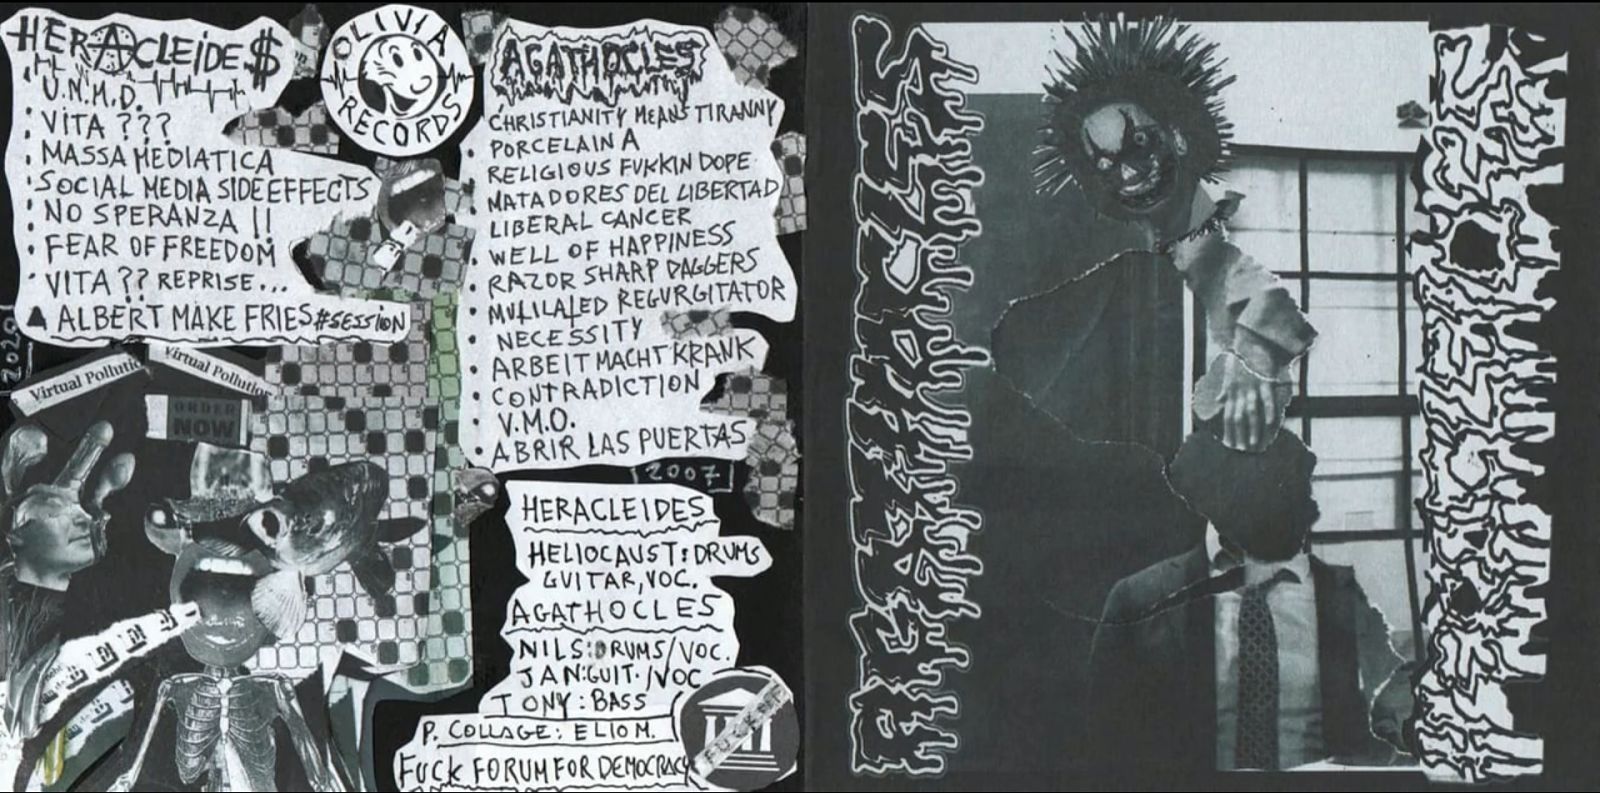 HERACLEIDE$
• U.N.M.D.
• VITA ???
• MASSA MEDIATICA
• SOCIAL MEDIA SIDEEFFECTS
• NO SPERANZA !!
• FEAR OF FREEDOM
• VITA ?? REPRISE...
ALBERT MAKE FRIES #SESSION
2020
OLIVIA
RECORDS
AGATHOCLES
CHRISTIANITY MEANS TIRANNY
• PORCELAIN A
RELIGIOUS FUKKIN DOPE
• MATADORES DEL LIBERTAD
LIBERAL CANCER
• WELL OF HAPPINESS
• RAZOR SHARP DAGGERS
• MULILATED REGURGITATOR
• NECESSITY
• ARBEIT MACHT KRANK
• CONTRADICTION
• V.M.O.
• ABRIR LAS PUERTAS
2007
Virtual Pollutio
Virtual Pollution
ORDER
NOW
HERACLEIDES
HELIOCAUST: DRUMS
GUITAR, VOC.
AGATHOCLES
NILS: DRUMS/VOC.
JAN: GUIT./VOC
TONY: BASS
P. COLLAGE: ELIO M.
FUCK FORUM FOR DEMOCRACY
AGATHOCLES